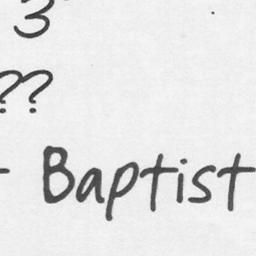 3
??
- Baptist